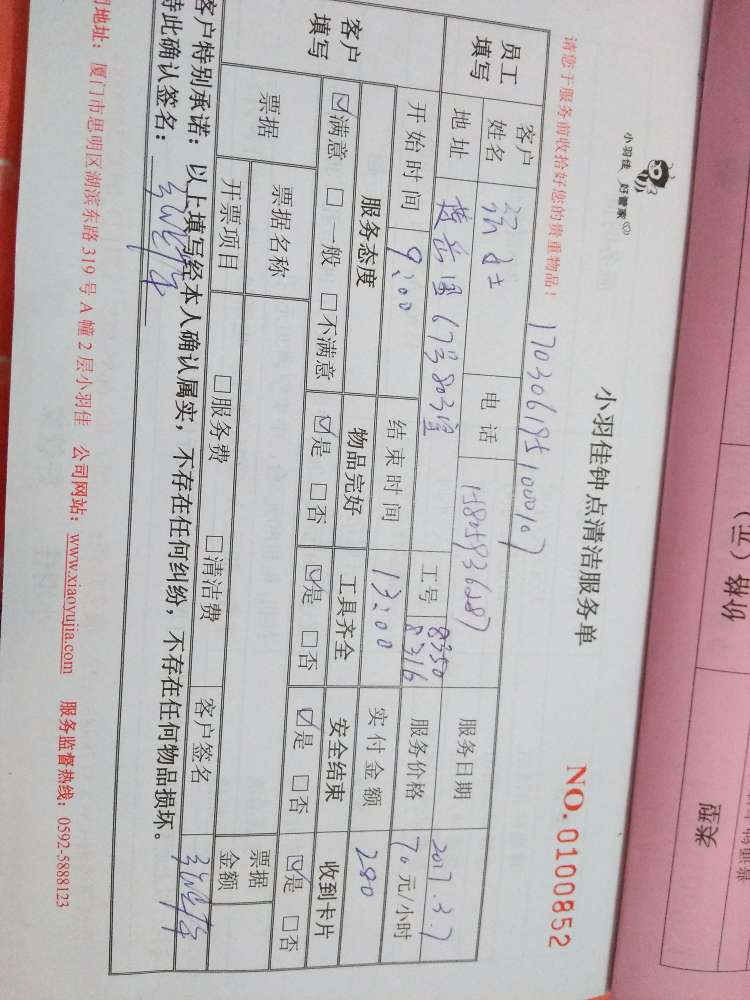 小羽佳 好管家
小羽佳钟点清洁服务单
NO.0100852
请您于服务前收拾好您的贵重物品！
170306195100107
员工填写
客户姓名
女士
电话
工号 8350 8316
服务日期 2017.3.7
地址
服务价格 70元/小时
开始时间 9:00
结束时间 13:00
实付金额 280
客户填写
服务态度 物品完好 工具齐全 安全结束 收到卡片
☑满意 □一般 □不满意 ☑是 □否 ☑是 □否 ☑是 □否 ☑是 □否
票据
票据名称
票据金额
开票项目 □服务费 □清洁费
客户签名
客户特别承诺：以上填写经本人确认属实，不存在任何纠纷，不存在任何物品损坏。
特此确认签名：
司地址：厦门市思明区湖滨东路319号A幢2层小羽佳 公司网站：www.xiaoyujia.com 服务监督热线：0592-5888123